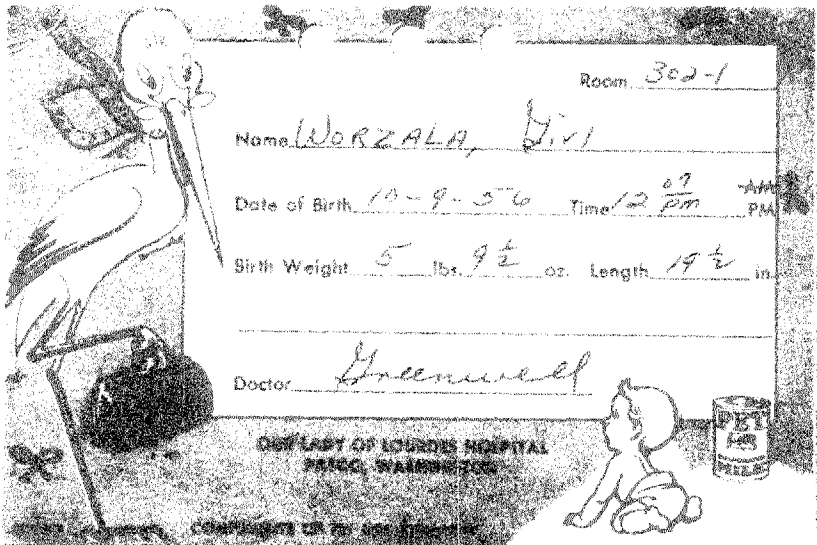 Room 302-1
Name WORZALA, Girl
Date of Birth 10-9-56 Time 12 07 pm AM PM
Birth Weight 5 lbs. 9 1/2 oz. Length 19 1/2 in.
Doctor Greenwell
OUR LADY OF LOURDES HOSPITAL
PASCO, WASHINGTON
PET
MILK
COMPLIMENTS OF PET MILK COMPANY